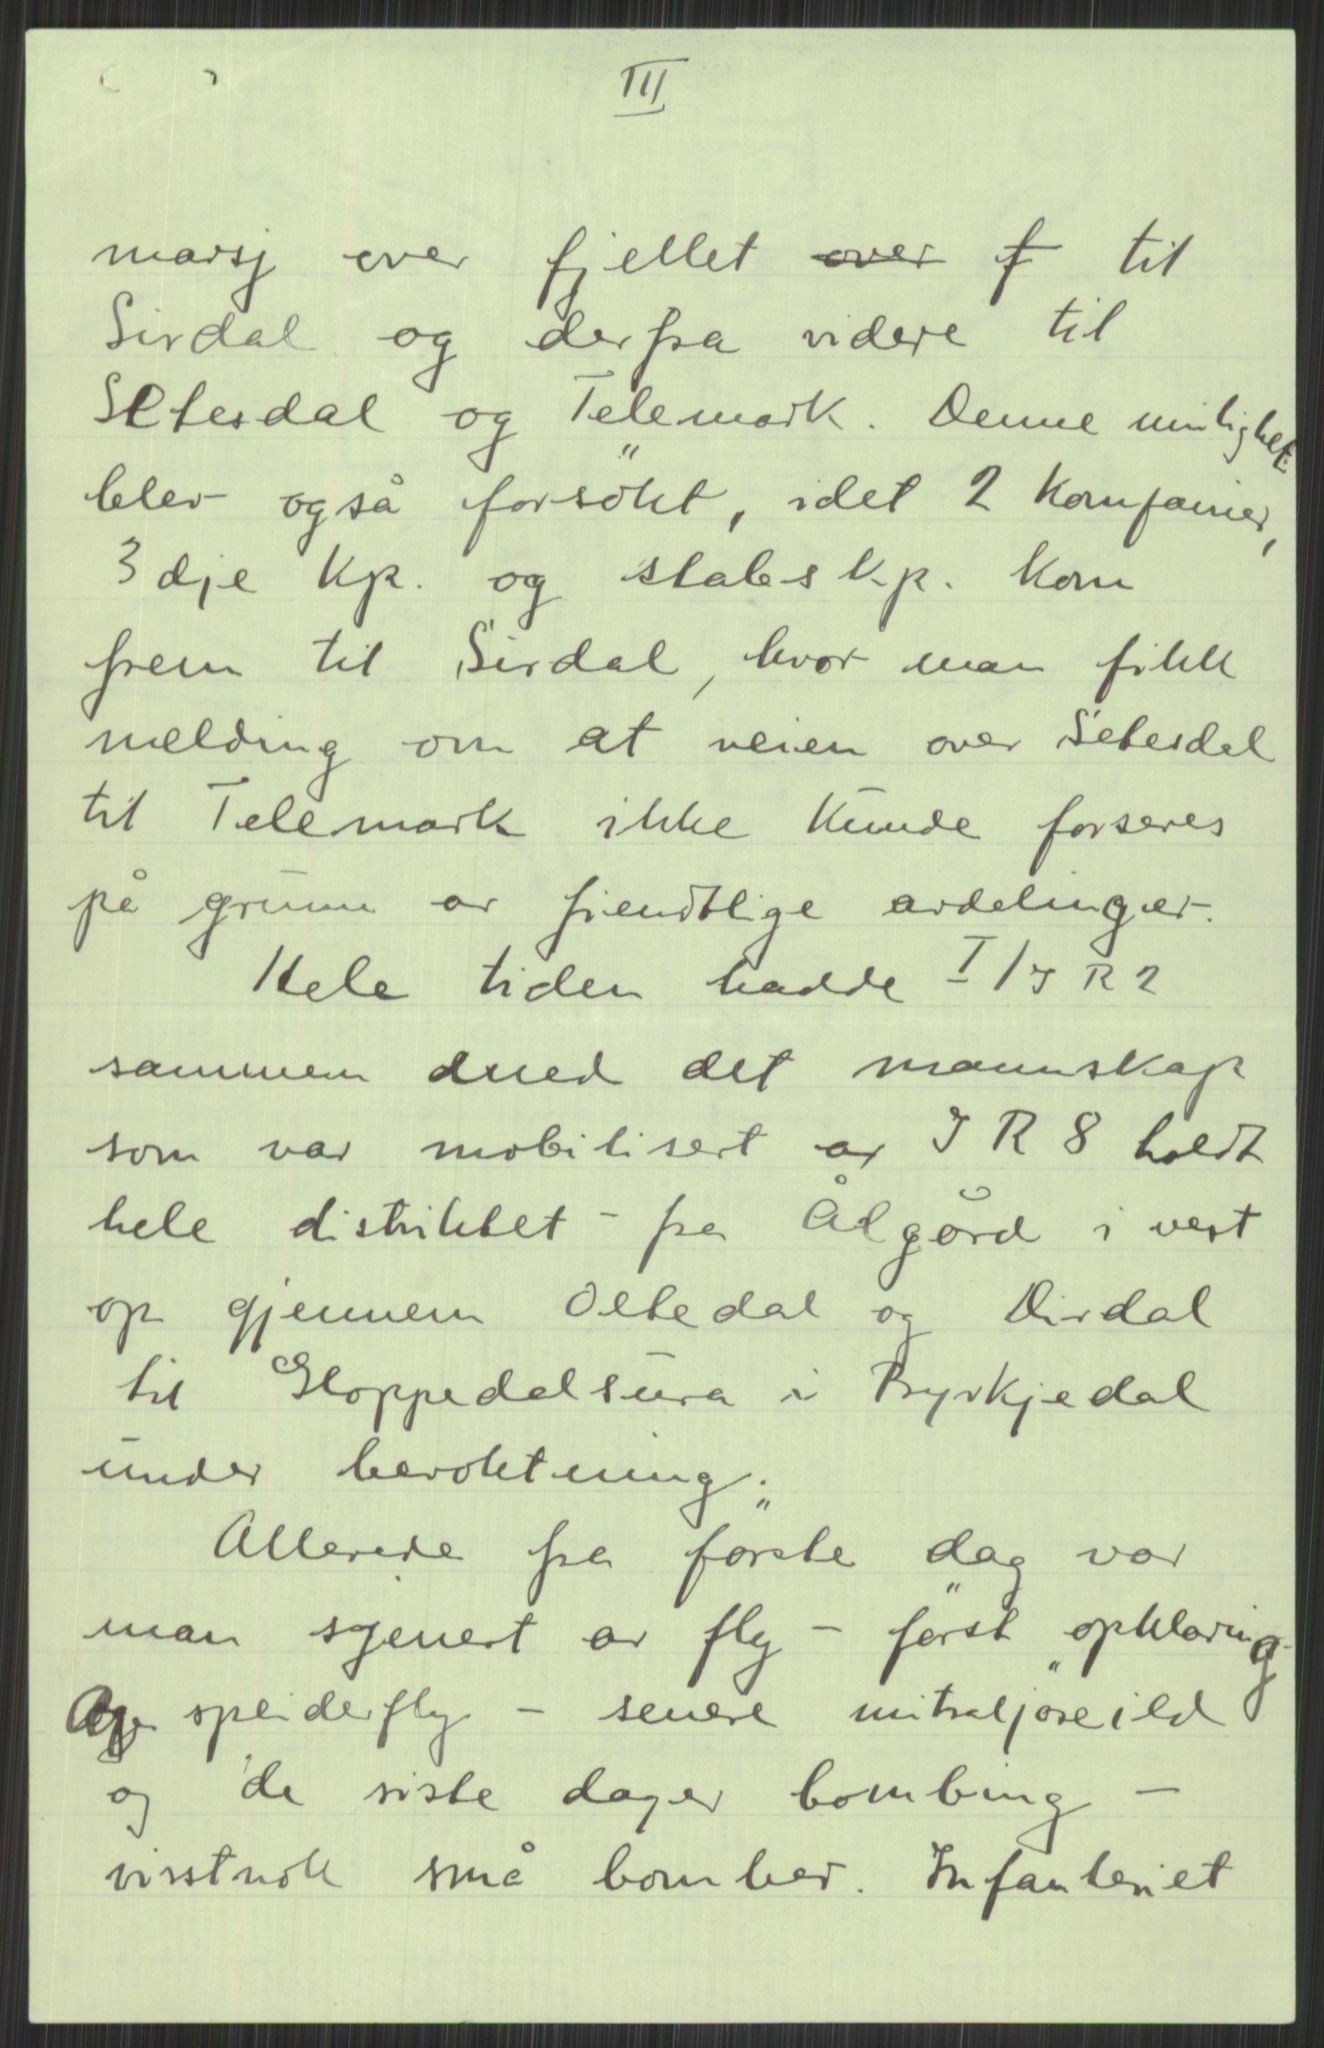 III
marsj over fjellet over f til
Sirdal og derfra videre til
Setesdal og Telemark. Denne mulighet
blev også forsökt, idet 2 kompanier,
3dje Kp. og stabskp. kom
frem til Sirdal, hvor man fikk
melding om at veien over Setesdal
til Telemark ikke kunde forseres
på grunn av fiendtlige avdelinger.
Hele tiden hadde I/IR2
sammen med det mannskap
som var mobilisert av IR8 holdt
hele distriktet - fra Ålgård i vest
op gjennem Oltedal og Dirdal
til Gloppedalsura i Byrkjedal
under bevoktning.
Allerede fra förste dag var
man sjenert av fly - först opklaring
og speiderfly - senere mitraljöseild
og de siste dager bombing -
visstnok små bomber. Infanteriet